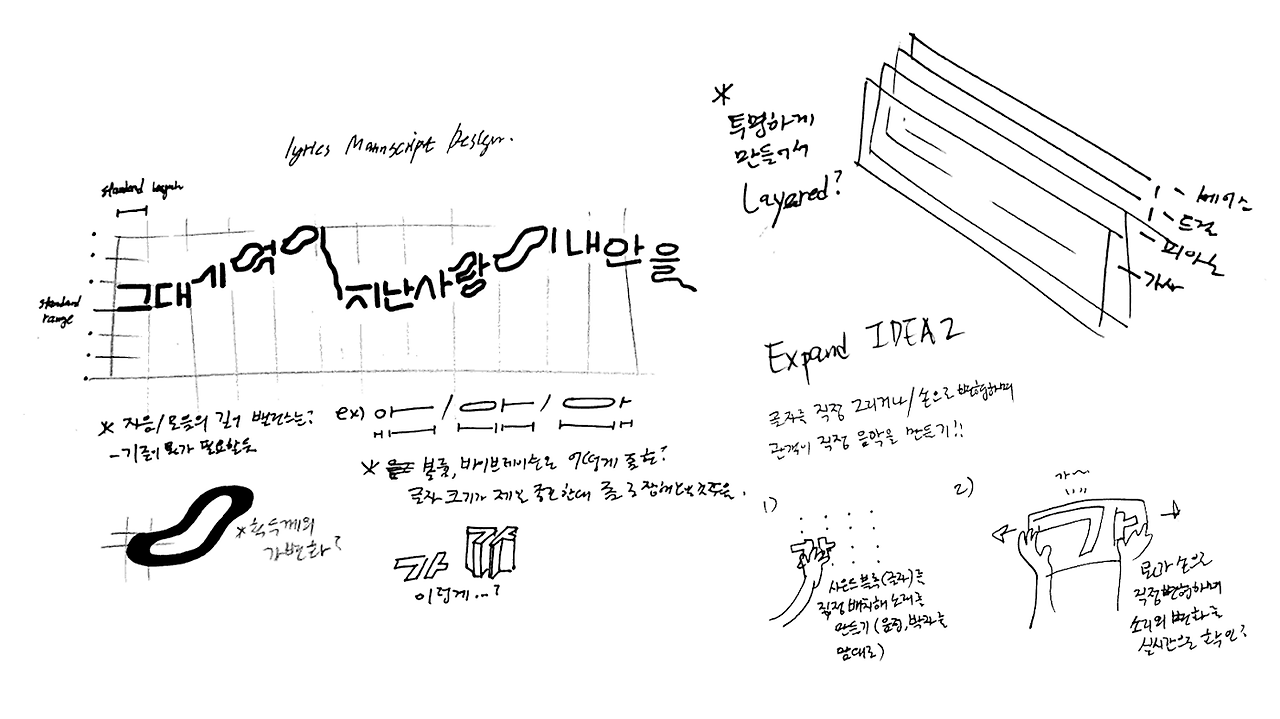 lyrics Manuscript Design.
standard length
standard range
그대 기억이 지난 사랑이 내 안을
* 자음/모음의 길이 밸런스는?
- 기준이 뭐가 필요할듯
ex) 아 / 아 / 아
* 볼륨, 바이브레이션은 어떻게 표현?
글자 크기가 제일
* 획 두께의
가변화?
가
이렇게...?
*
투명하게
만들어서
Layered?
베이스
드럼
피아노
가사
Expand IDEA 2
글자를 직접 그리거나/손으로 변형하며
관객이 직접 음악을 만들기!!
1)
사운드 블록(글자)를
직접 배치해 노래를
만들기 (음정, 박자를
맘대로)
2)
가~
가
뭔가 손으로
직접 변형하며
소리의 변화를
실시간으로 확인?